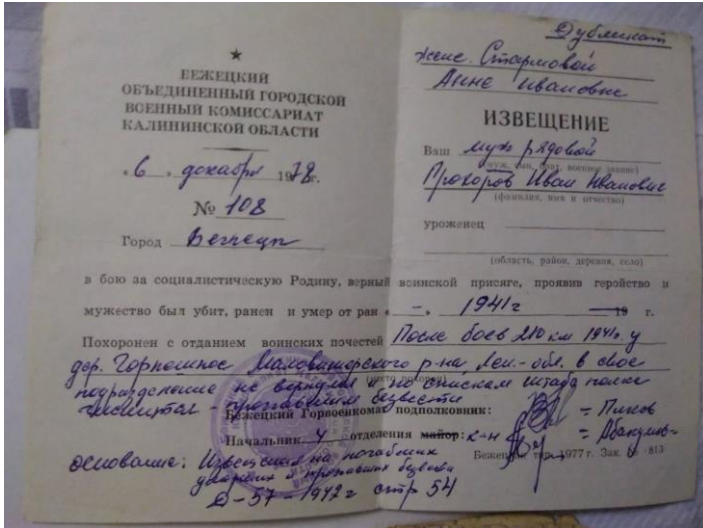 ★
БЕЖЕЦКИЙ
ОБЪЕДИНЕННЫЙ ГОРОДСКОЙ
ВОЕННЫЙ КОМИССАРИАТ
КАЛИНИНСКОЙ ОБЛАСТИ
«6» декабря 1978 г.
№ 108
Город Бежецк
Дубликат
жене Стармовой
Анне Ивановне
ИЗВЕЩЕНИЕ
Ваш муж рядовой
(муж, сын, брат, военное звание)
Прохоров Иван Иванович
(фамилия, имя и отчество)
уроженец
(область, район, деревня, село)
в бою за социалистическую Родину, верный воинской присяге, проявив геройство и
мужество был убит, ранен и умер от ран « - » 1941г 19 г.
Похоронен с отданием воинских почестей После боев 210 км 1941г. у
дер. Маловишерского р-на, Лен. обл. в свое
подразделение не вернулся и по спискам штаба полка
числится - пропавшим безвести
Бежецкий Горвоенкомат подполковник:
Начальник 4 отделения майор: к-н
основание: Извещения на погибших
умерших и пропавших безвести
Д-57-1942г стр 54
Бежецк, тир. 1977 г. Зак. 813